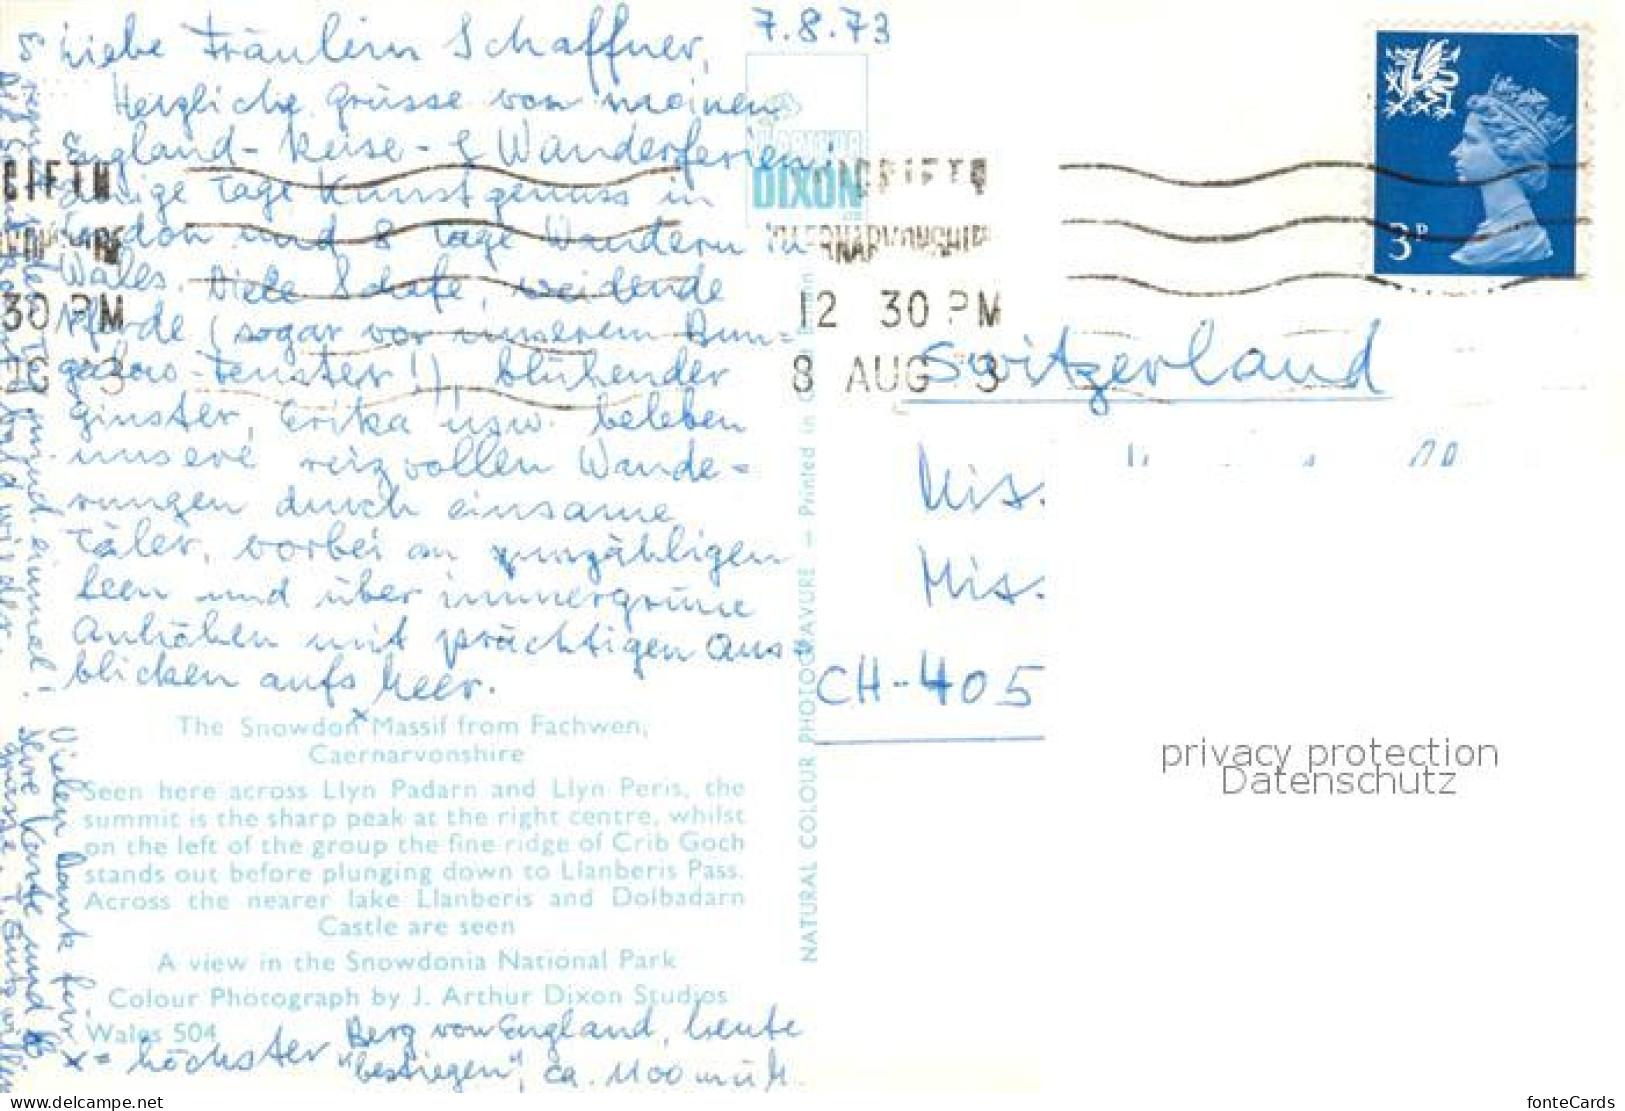 7.8.73
Liebe Fräulein Schaffner,
Herzliche Grüsse von meinen
England-Reise- & Wanderferien!
Einige Tage Kunstgenuss in
London und 8 Tage Wandern in
Wales. Viele Schafe, weidende
Pferde (sogar vor unserem Bun=
galow-Fenster!) blühender
Ginster, Erika usw. beleben
unsere reizvollen Wande=
rungen durch einsame
Täler, vorbei an unzähligen
Seen und über immergrüne
Anhöhen mit prächtigen Aus=
blicken aufs Meer.
Es regnet jeden Tag mind. einmal!
Die Sonne bald wieder.
The Snowdon x Massif from Fachwen,
Caernarvonshire
Seen here across Llyn Padarn and Llyn Peris, the
summit is the sharp peak at the right centre, whilst
on the left of the group the fine ridge of Crib Goch
stands out before plunging down to Llanberis Pass.
Across the nearer lake Llanberis and Dolbadarn
Castle are seen
A view in the Snowdonia National Park
Colour Photograph by J. Arthur Dixon Studios
Wales 504
x = höchster Berg von England, heute
"bestiegen", ca. 1100 m ü M.
Vielen Dank für
Ihre Karte und
Grüsse,
DIXON
LTD
NATURAL COLOUR PHOTOGRAVURE — Printed in Great Britain
CAERNARVONSHIRE
12 30 PM
8 AUG 73
30 PM
3P
Switzerland
Miss.
Miss.
CH-405
privacy protection
Datenschutz
www.delcampe.net
fonteCards